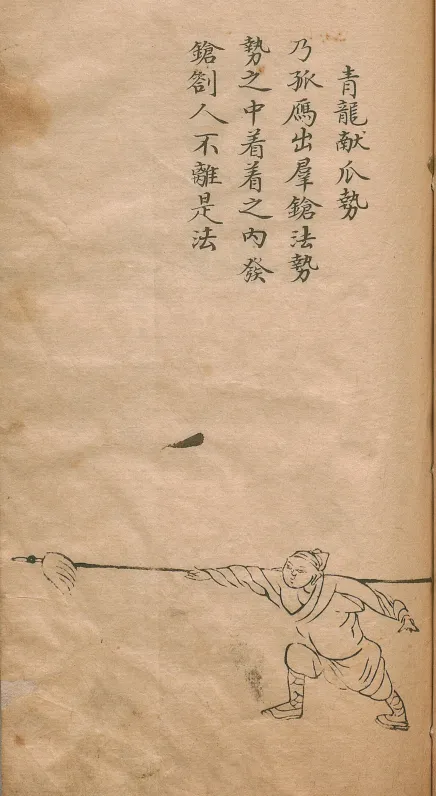 青龍献爪勢
乃孤鴈出羣鎗法勢
勢之中着着之內發
鎗劄人不離是法